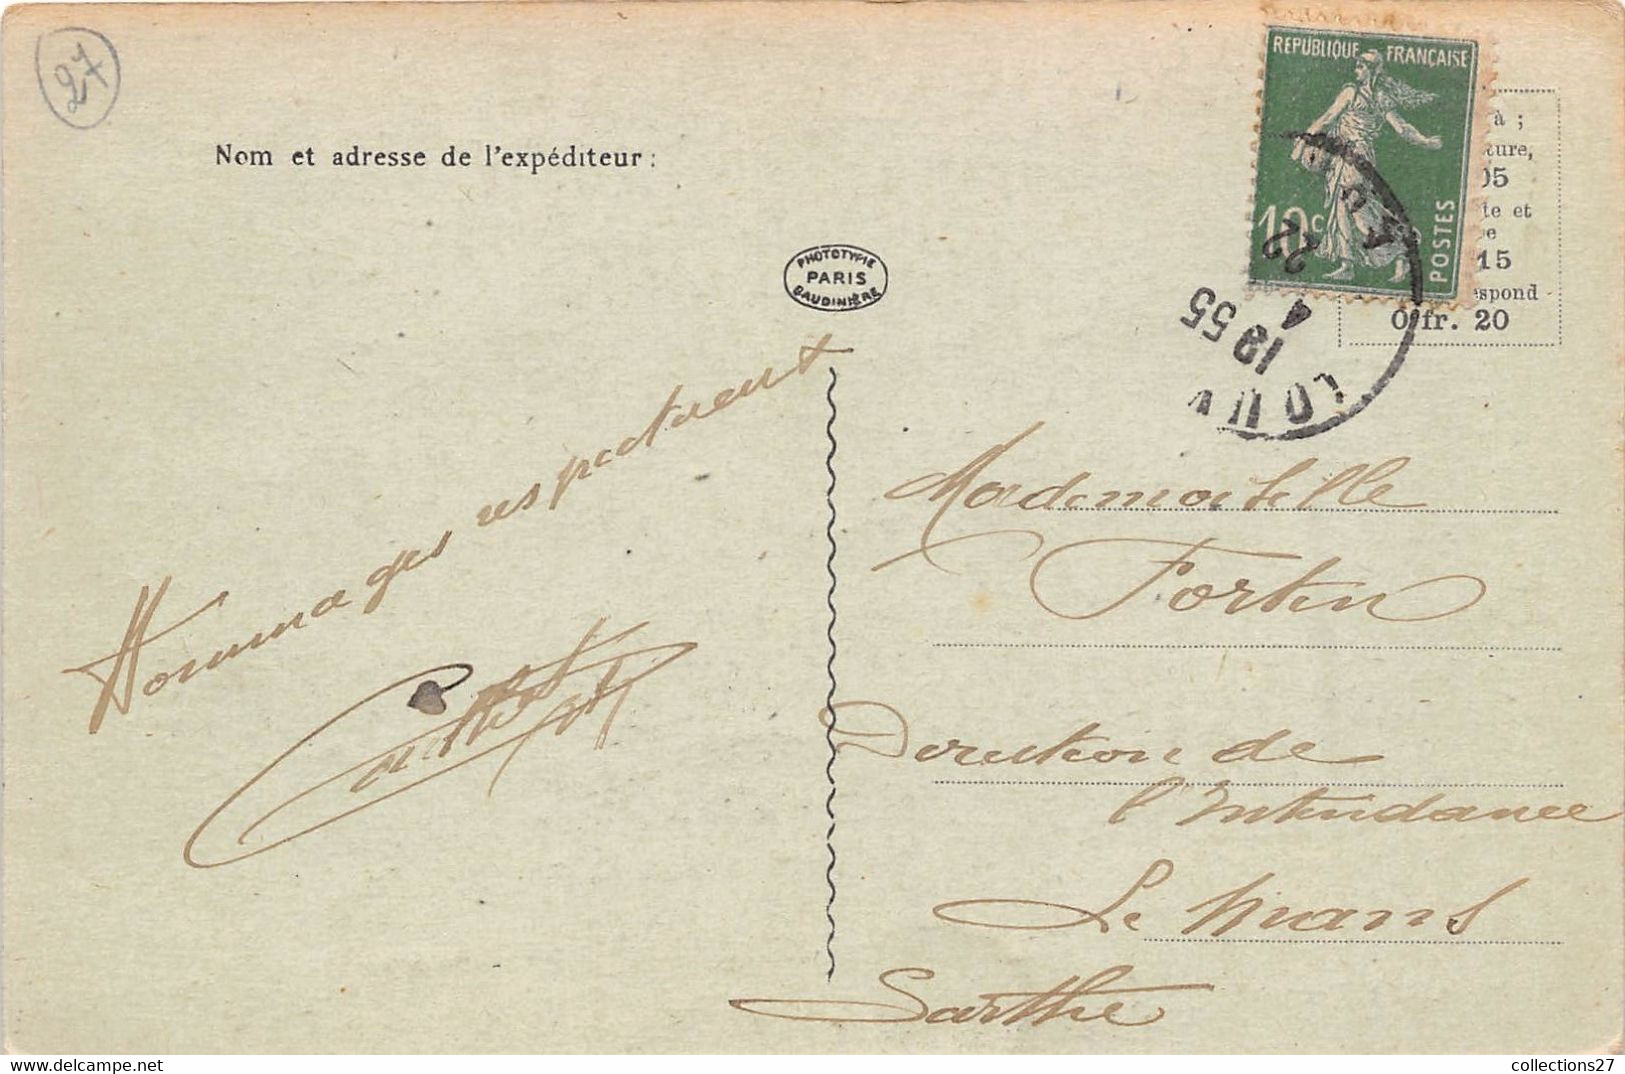 27
Nom et adresse de l'expéditeur :
REPUBLIQUE FRANÇAISE
10c
POSTES
à ;
ture,
05
te et
15
espond
0 fr. 20
LOUV
19 55
4
22
PHOTOTYPIE
PARIS
BAUDINIÈRE
Hommages respectueux
Mademoiselle
Fortin
Direction de
l'Intendance
Le Mans
Sarthe
www.delcampe.net
collections27